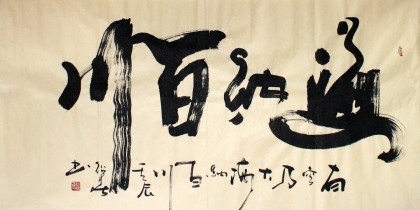 海纳百川
有容乃大海纳百川
壬辰
书